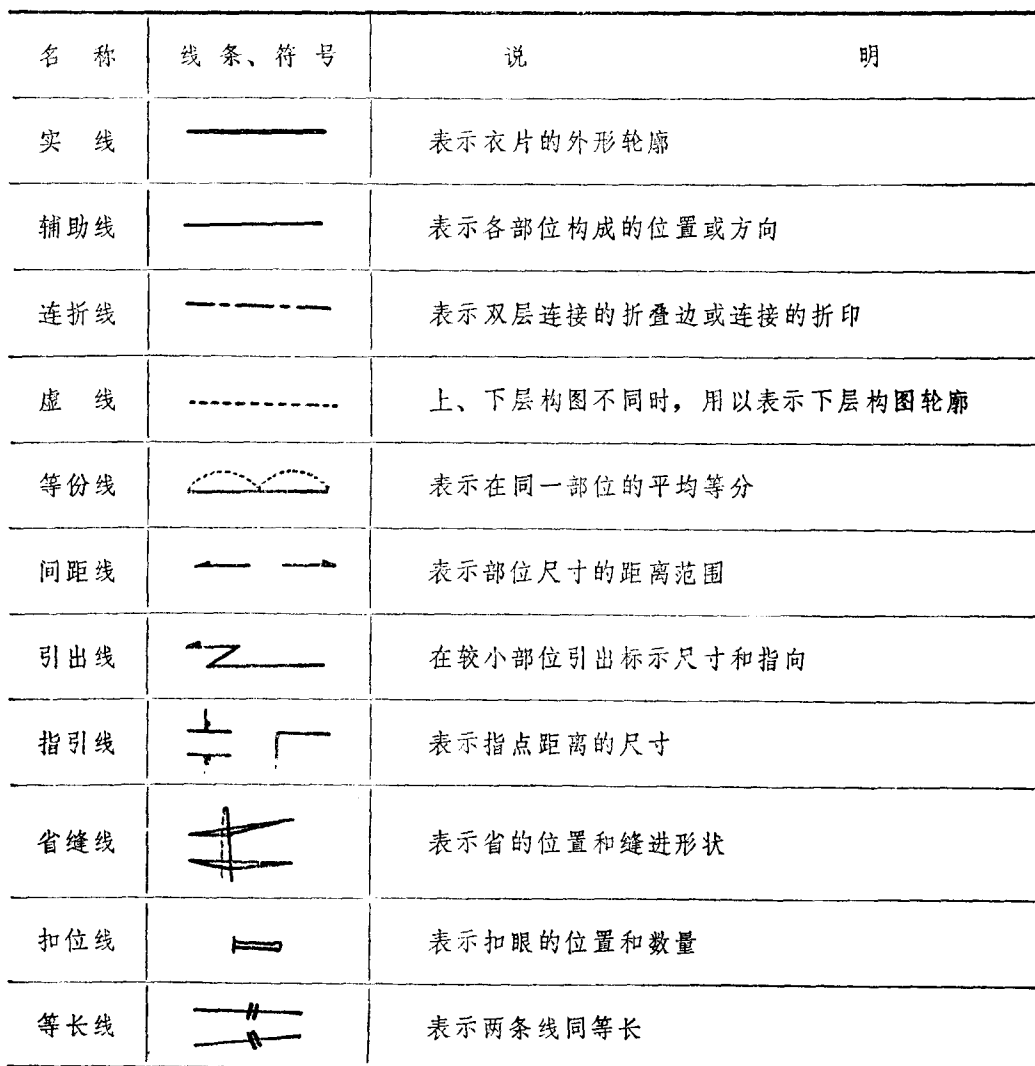 名称 线条、符号 说明
实线 表示衣片的外形轮廓
辅助线 表示各部位构成的位置或方向
连折线 表示双层连接的折叠边或连接的折印
虚线 上、下层构图不同时，用以表示下层构图轮廓
等份线 表示在同一部位的平均等分
间距线 表示部位尺寸的距离范围
引出线 在较小部位引出标示尺寸和指向
指引线 表示指点距离的尺寸
省缝线 表示省的位置和缝进形状
扣位线 表示扣眼的位置和数量
等长线 表示两条线同等长